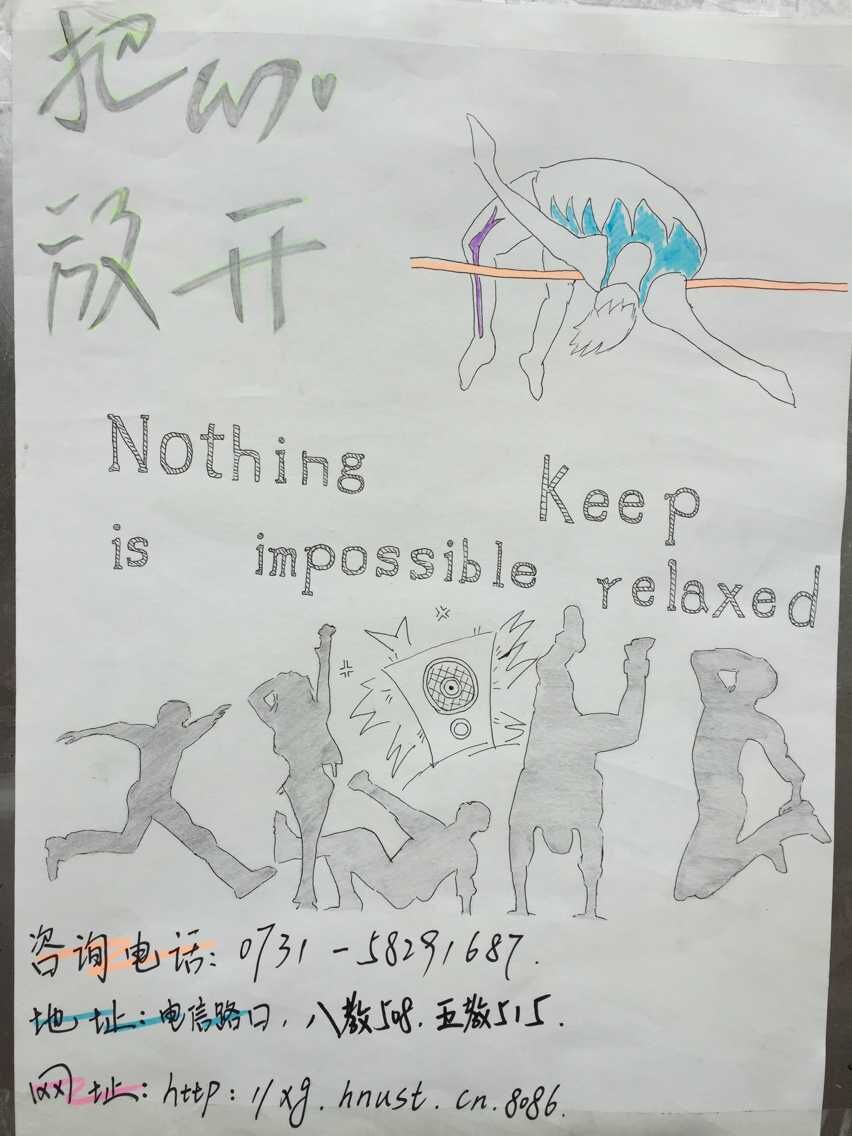 把心
放开
Nothing
is impossible
Keep
relaxed
咨询电话:0731-58291687.
地址:电信路口,八教508.五教515.
网址:http://xg.hnust.cn.8086.